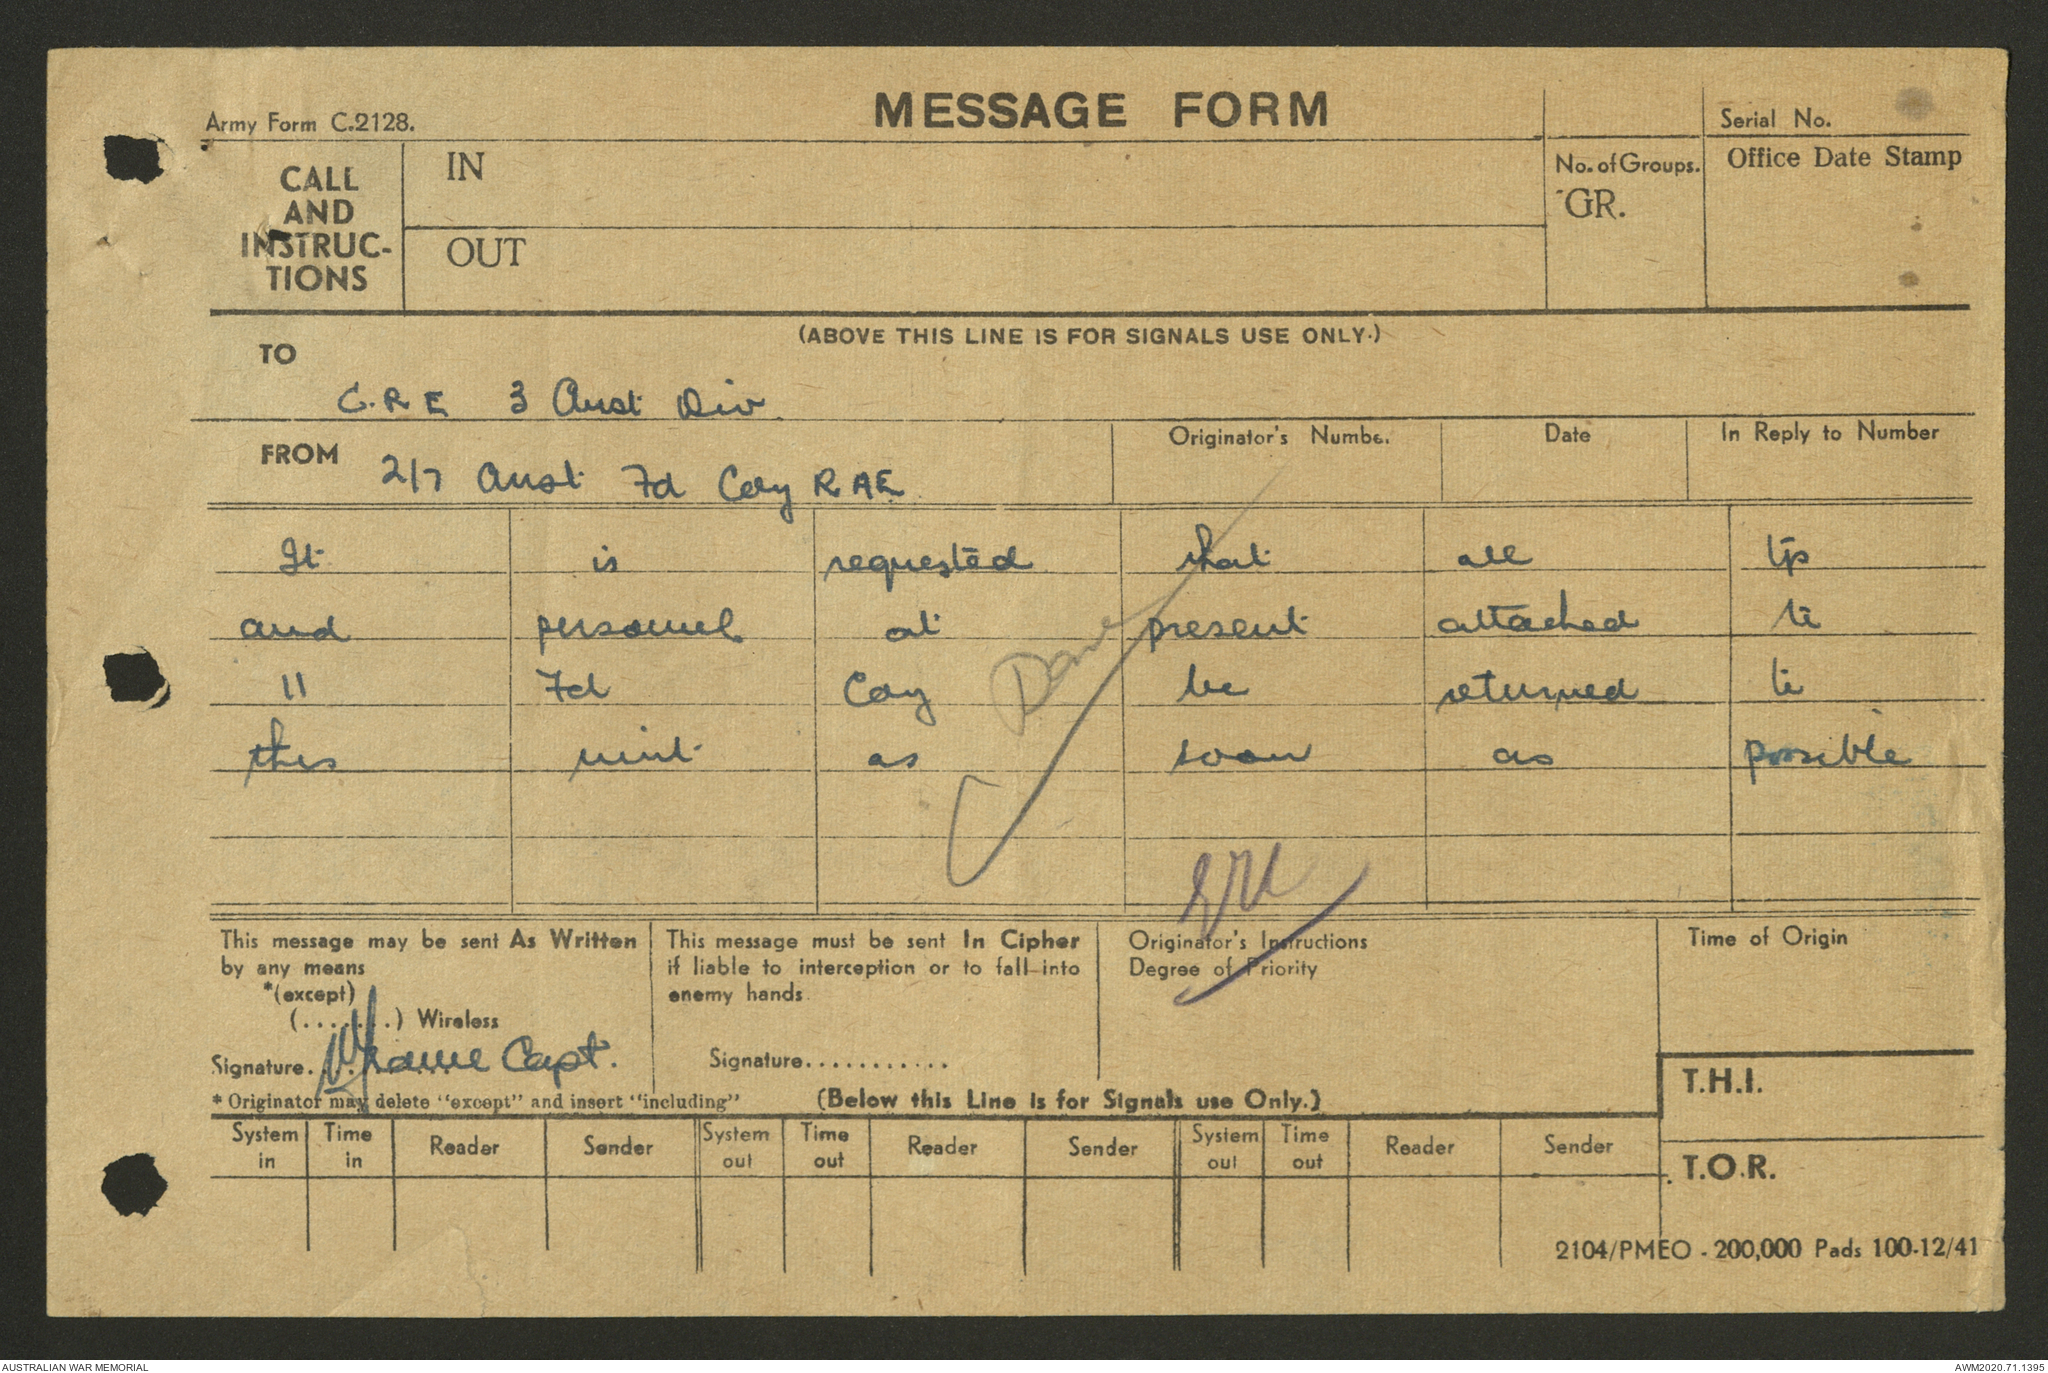 Army Form C.2128.
MESSAGE FORM
Serial No.
CALL AND INSTRUC-TIONS
IN
OUT
No. of Groups.
GR.
Office Date Stamp
(ABOVE THIS LINE IS FOR SIGNALS USE ONLY.)
TO
C.R.E 3 Aust Div.
FROM 2/7 Aust Fd Coy RAE
Originator's Number. Date In Reply to Number
It is requested that all tps
and personnel at present attached to
11 Fd Coy be returned to
this unit as soon as possible
Done
This message may be sent As Written
by any means
*(except)
(.......) Wireless
Signature. Capt.
This message must be sent In Cipher
if liable to interception or to fall into
enemy hands.
Signature...........
Originator's Instructions
Degree of Priority
Time of Origin
* Originator may delete "except" and insert "including"
(Below this Line is for Signals use Only.)
T.H.I.
System in Time in Reader Sender System out Time out Reader Sender System out Time out Reader Sender
T.O.R.
2104/PMEO - 200,000 Pads 100-12/41
AUSTRALIAN WAR MEMORIAL
AWM2020.71.1395